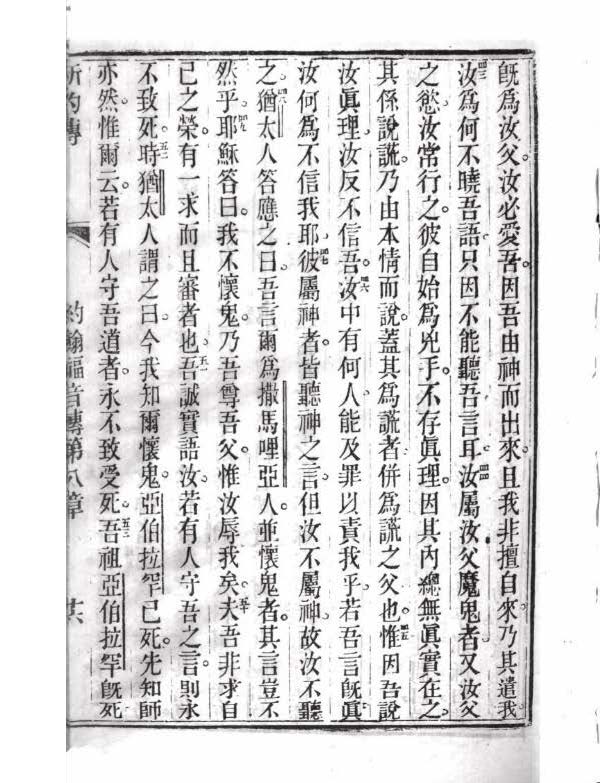 旣爲汝父汝必愛吾因吾由神而出來且我非擅自來乃其遣我
四三汝爲何不曉吾語只因不能聽吾言耳四四汝屬汝父魔鬼者又汝父
之慾汝常行之彼自始爲兇手不存眞理因其內總無眞實在之
其係說謊乃由本情而說蓋其爲謊者併爲謊之父也四五惟因吾說
汝眞理汝反不信吾四六汝中有何人能及罪以責我乎若吾言旣眞
汝何爲不信我耶四七彼屬神者皆聽神之言但汝不屬神故汝不聽
之四八猶太人答應之曰吾言爾爲撒馬哩亞人並懷鬼者其言豈不
然乎四九耶穌答曰我不懷鬼乃吾尊吾父惟汝辱我矣五十夫吾非求自
己之榮有一求而且審者也五一吾誠實語汝若有人守吾之言則永
不致死五二時猶太人謂之曰今我知爾懷鬼亞伯拉罕已死先知師
亦然惟爾云若有人守吾道者永不致受死五三吾祖亞伯拉罕旣死
新約傳 約翰福音傳第八章 廿六